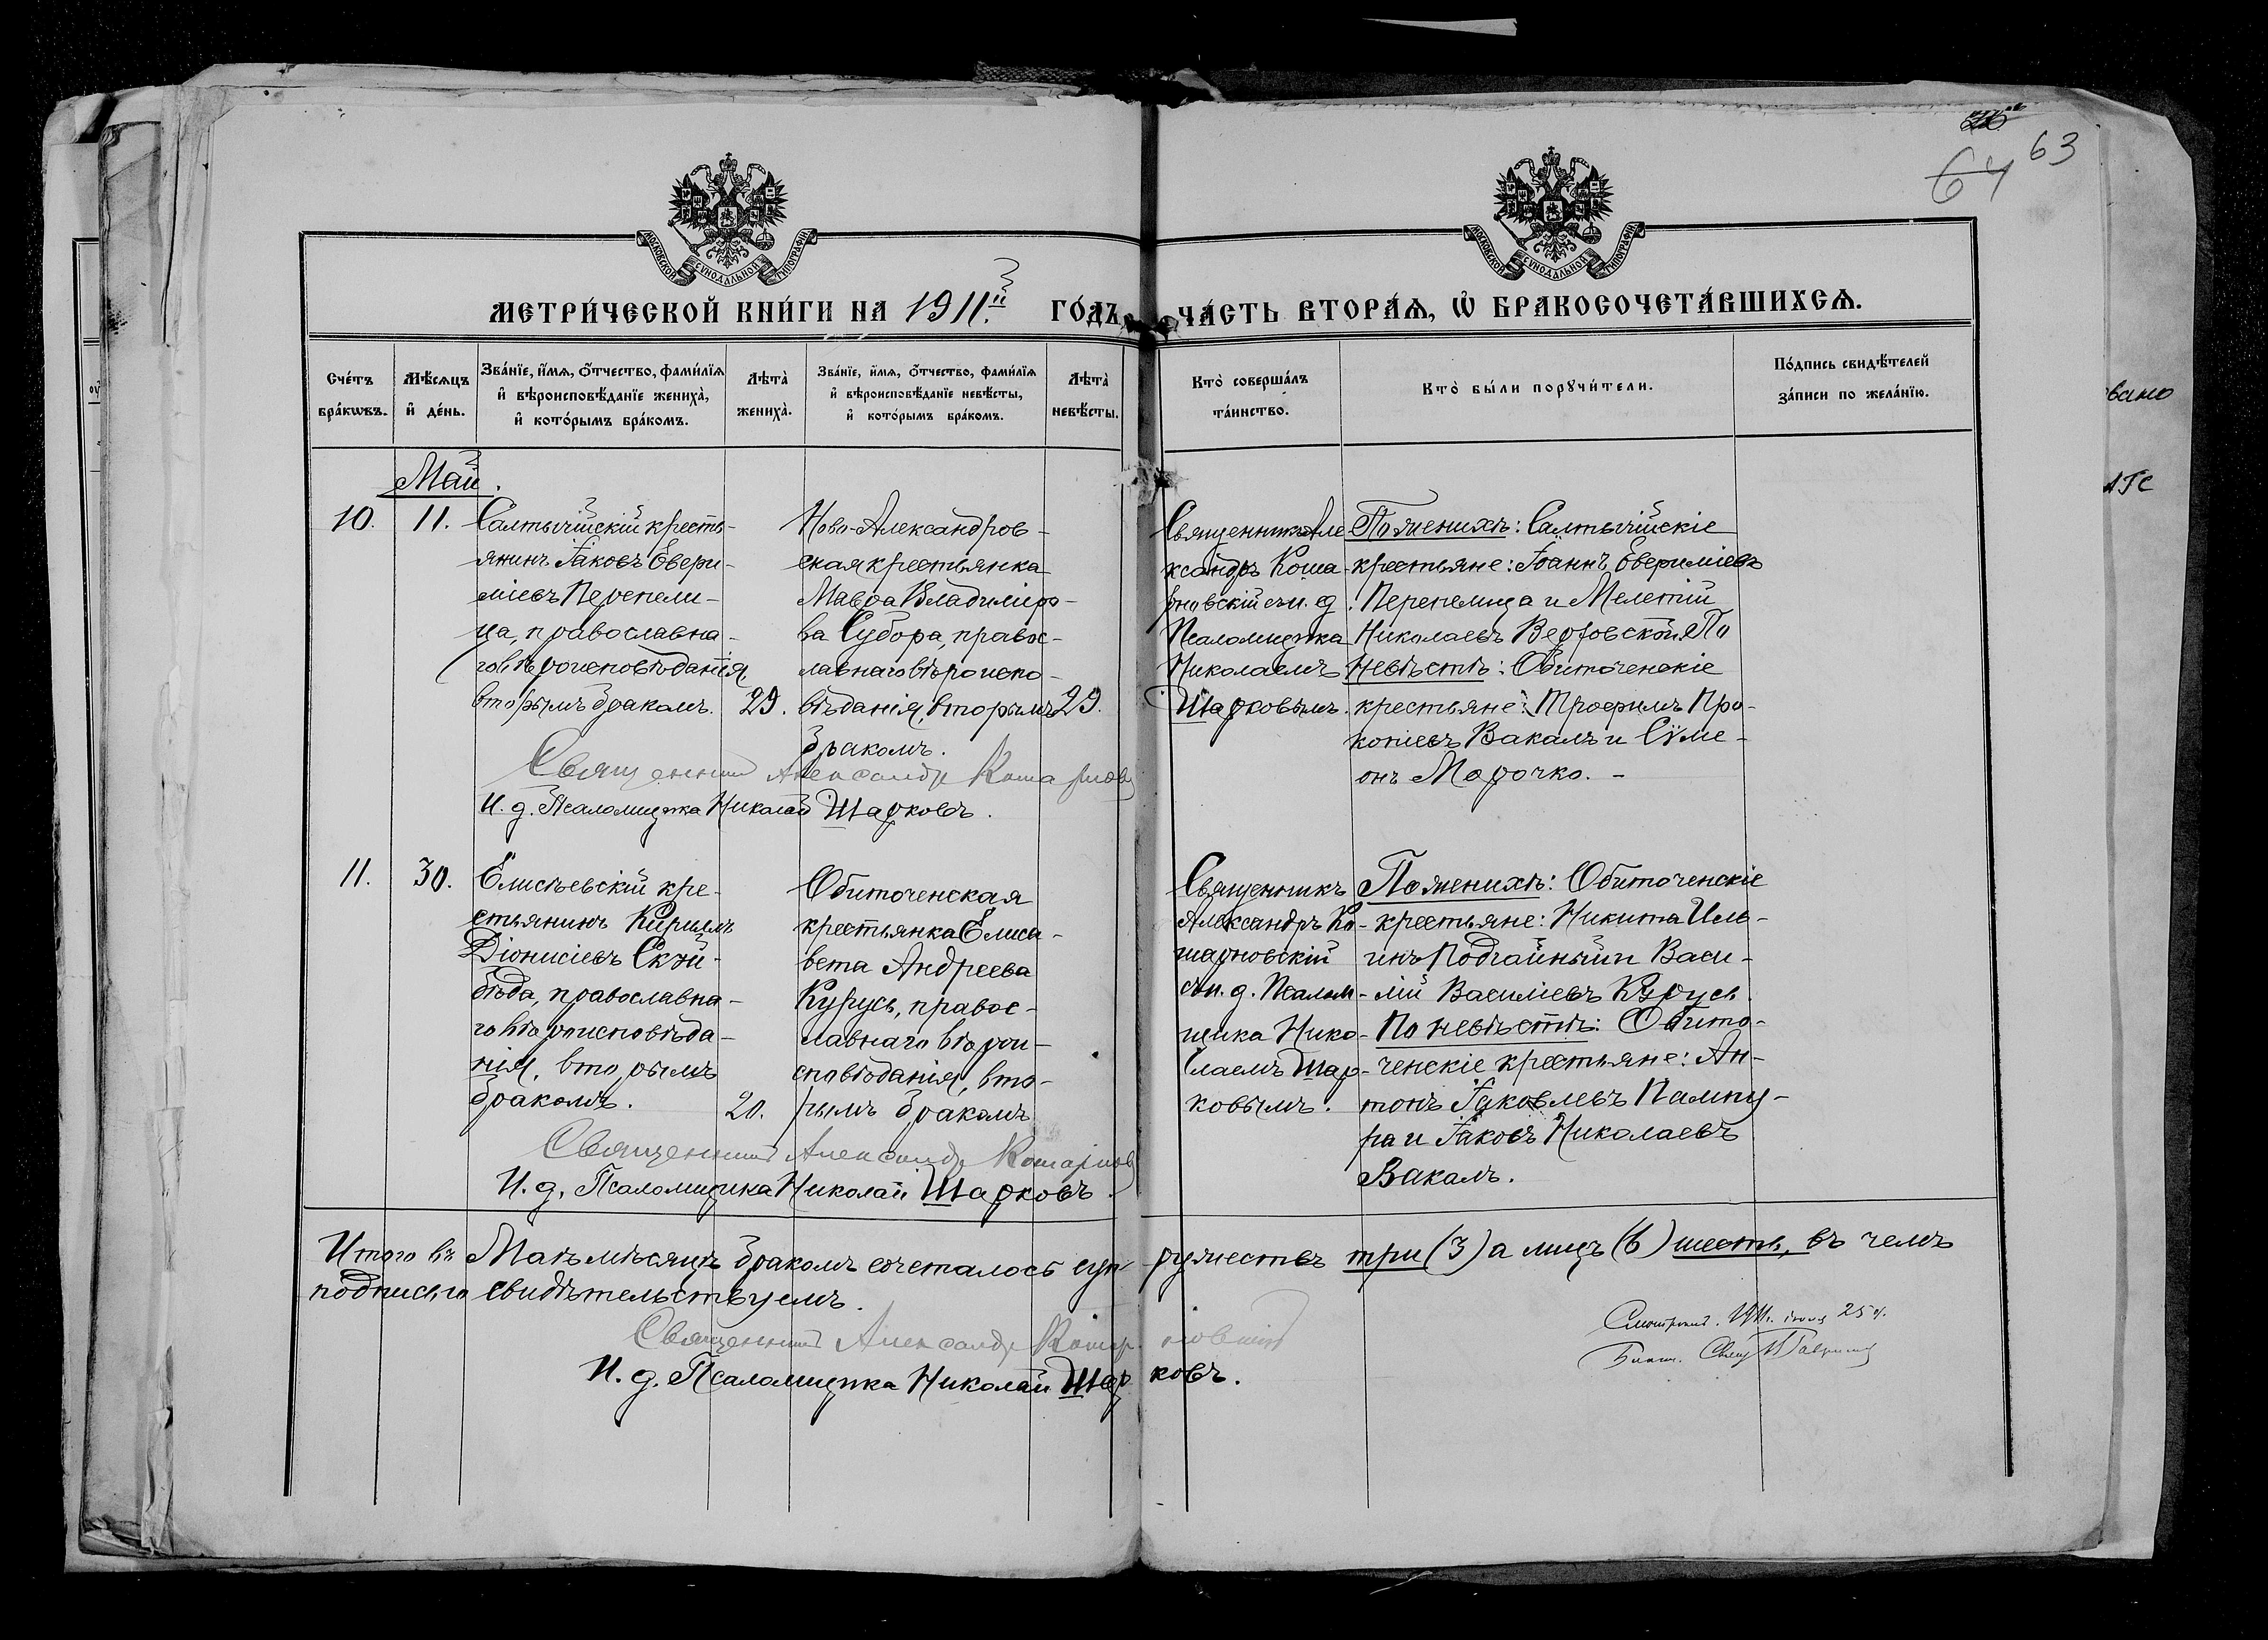 63
64
МОСКОВСКОЙ СѴНОДАЛЬНОЙ ТИПОГРАФІИ
МОСКОВСКОЙ СѴНОДАЛЬНОЙ ТИПОГРАФІИ
МЕТРИ́ЧЕСКОЙ КНИ́ГИ НА 1911й ГО́ДЪ, ЧА́СТЬ ВТОРА́Ѧ, Ѽ БРАКОСОЧЕТА́ВШИХСѦ.
Сче́тъ бра́кѡвъ.
Мѣ́сѧцъ и҆ де́нь.
Зва́нїе, и҆́мѧ, ѻ҆́тчество, фами́лїѧ и҆ вѣроисповѣ́данїе жениха̀, и҆ кото́рымъ бра́комъ.
Лѣта̀ жениха̀.
Зва́нїе, и҆́мѧ, ѻ҆́тчество, фами́лїѧ и҆ вѣроисповѣ́данїе невѣ́сты, и҆ кото́рымъ бра́комъ.
Лѣта̀ невѣ́сты.
Кто̀ соверша́лъ та́инство.
Кто̀ бы́ли порꙋчи́тели.
По́дпись свидѣ́телей за́писи по жела́нїю.
Май.
10.
11.
Салтычійскій кресть-
янинъ Іаковъ Евфи-
міевъ Перепели-
ца, православна-
го вѣроисповѣданія,
вторымъ бракомъ.
29.
Ново-Александров-
ская крестьянка
Мавра Владиміро-
ва Субора, правос-
лавнаго вѣроиспо-
вѣданія, вторымъ
бракомъ.
29.
Священникъ Але
ксандръ Коша-
рновскій съ и. д.
Псаломщика
Николаемъ
Шарковымъ.
По женихѣ: Салтычійскіе
крестьяне: Іоаннъ Евфиміевъ
Перепелица и Мелетій
Николаевъ Верховской. По
невѣстѣ: Обиточенскіе
крестьяне: Трофимъ Про-
копіевъ Вакалъ и Сѵме-
онъ Морочко. -
Священникъ Александръ Кошарновс
И. д. Псаломщика Николай Шарковъ.
11.
30.
Елисѣевскій кре-
стьянинъ Кириллъ
Діонисіевъ Ской-
бѣда, православна-
го вѣроисповѣда-
нія, вторымъ
бракомъ.
20.
Обиточенская
крестьянка Елиса-
вета Андреева
Курусь, правос-
лавнаго вѣрои-
сповѣданія, вто-
рымъ бракомъ
Священникъ
Александръ Ко-
шарновскій
съ и. д. Псалом-
щика Нико-
лаемъ Шар-
ковымъ.
По женихѣ: Обиточенскіе
крестьяне: Никита Иль-
инъ Подгайный и Васи-
лій Василіевъ Курусь.
По невѣстѣ: Обито-
ченскіе крестьяне: Ан-
тонъ Іаковлевъ Пампу-
ра и Іаковъ Николаевъ
Вакалъ.
Священникъ Александръ Кошарновс
И. д. Псаломщика Николай Шарковъ.
Итого въ Маѣ мѣсяцѣ бракомъ сочеталось суп-ружествъ три (3) а лицъ (6) шесть, въ чемъ
подписью свидѣтельствуемъ.
Священникъ Александръ Кошарновскій
И. д. Псаломщика Николай Шарковъ.
1911 г. 25
вано
АГС